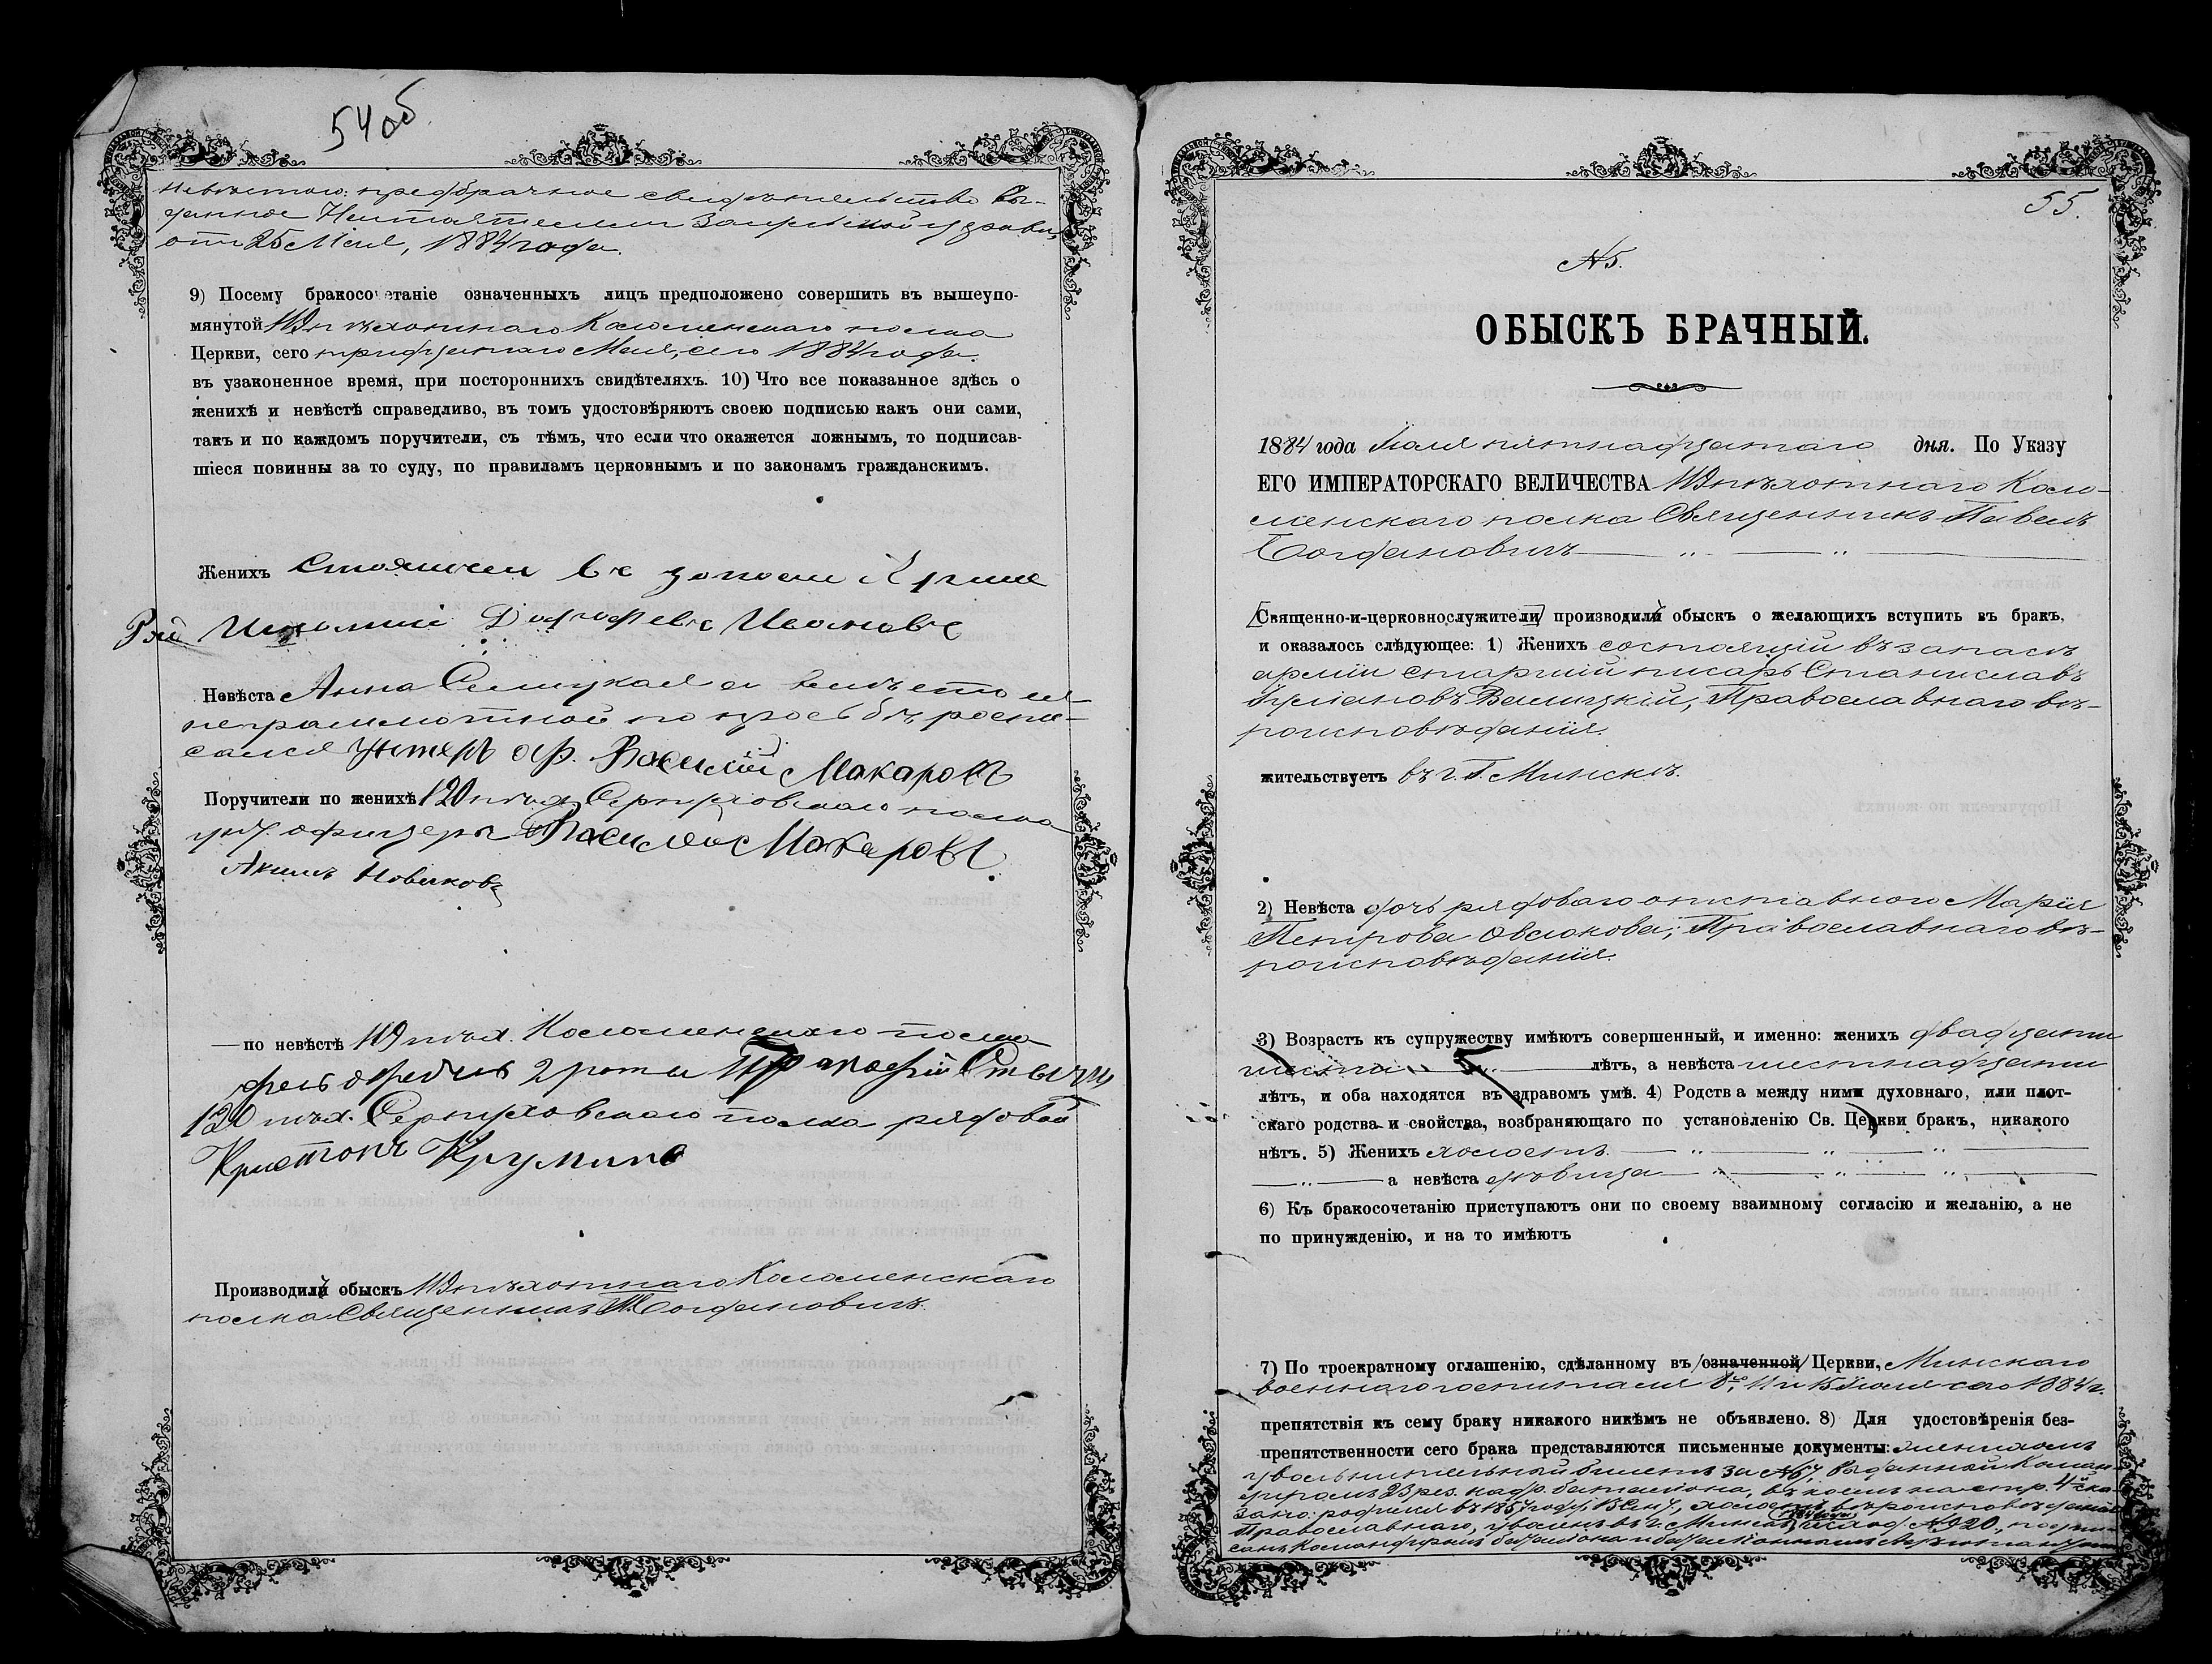 54об
невѣстою: предбрачное свидѣтельство вы-
данное
отъ 25 Мая, 1884 года.
9) Посему бракосочетаніе означенныхъ лицъ предположено совершить въ вышеупо-
мянутой 119 пѣхотнаго Коломенскаго полка
Церкви, сего тридцатаго Мая, сего 1884 года.
въ узаконенное время, при постороннихъ свидѣтеляхъ. 10) Что все показанное здѣсь о
женихѣ и невѣстѣ справедливо, въ томъ удостовѣряютъ своею подписью какъ они сами,
такъ и по каждомъ поручители, съ тѣмъ, что если что окажется ложнымъ, то подписав-
шіеся повинны за то суду, по правиламъ церковнымъ и по законамъ гражданскимъ.
Женихъ
Невѣста Анна а вмѣсто ея
неграмотной по просьбѣ роспи-
сался унтеръ оф. Василій Макаровъ
Поручители по женихѣ 120 пѣх. Серпуховскаго полка
унт. офицеры Василей Макаровъ
Акимъ Новиковъ
—по невѣстѣ 119 пѣх. Коломенскаго полка
2 роты
120 пѣх. Серпуховскаго полка рядовой
Круминъ
Производилъ обыскъ 119 пѣхотнаго Коломенскаго
полка Священникъ П. Богдановичъ.
55.
№ 5.
ОБЫСКЪ БРАЧНЫЙ.
1884 года Іюля пятнадцатаго дня. По Указу
ЕГО ИМПЕРАТОРСКАГО ВЕЛИЧЕСТВА 119 пѣхотнаго Коло-
менскаго полка Священникъ Павелъ
Богдановичъ
Священно-и-церковнослужители производилъ обыскъ о желающихъ вступить въ бракъ,
и оказалось слѣдующее: 1) Женихъ состоящій въ запасѣ
арміи старшій писарь Станиславъ
Велицкій, Православнаго вѣ-
роисповѣданія.
жительствуетъ въ г. Минскѣ.
2) Невѣста дочь рядоваго отставного Марія
Петрова Овсюкова; Православнаго вѣ-
роисповѣданія.
3) Возрастъ къ супружеству имѣютъ совершенный, и именно: женихъ двадцати
шести лѣтъ, а невѣста шестнадцати
лѣтъ, и оба находятся въ здравомъ умѣ. 4) Родства между ними духовнаго, или плот-
скаго родства и свойства, возбраняющаго по установленію Св. Церкви бракъ, никакого
нѣтъ. 5) Женихъ холостъ
а невѣста дѣвица
6) Къ бракосочетанію приступаютъ они по своему взаимному согласію и желанію, а не
по принужденію, и на то имѣютъ
7) По троекратному оглашенію, сдѣланному въ означенной Церкви, Минскаго
военнаго госпиталя 8, 11 и 15 Іюля сего 1884 г.
препятствія къ сему браку никакого никѣмъ не объявлено. 8) Для удостовѣренія без-
препятственности сего брака представляются письменные документы: женихомъ
увольнительный билетъ за № 67, выданный Коман-
диромъ 23 рез. кадр. баталіона, въ коемъ на стр. 4й ска-
зано: родился въ 1857 году, холостъ, вѣроисповѣданія
Православнаго, уволенъ въ г. Минскъ № 920, подпи-
санъ Командиромъ баталіона и баталіоннымъ Адъютантомъ